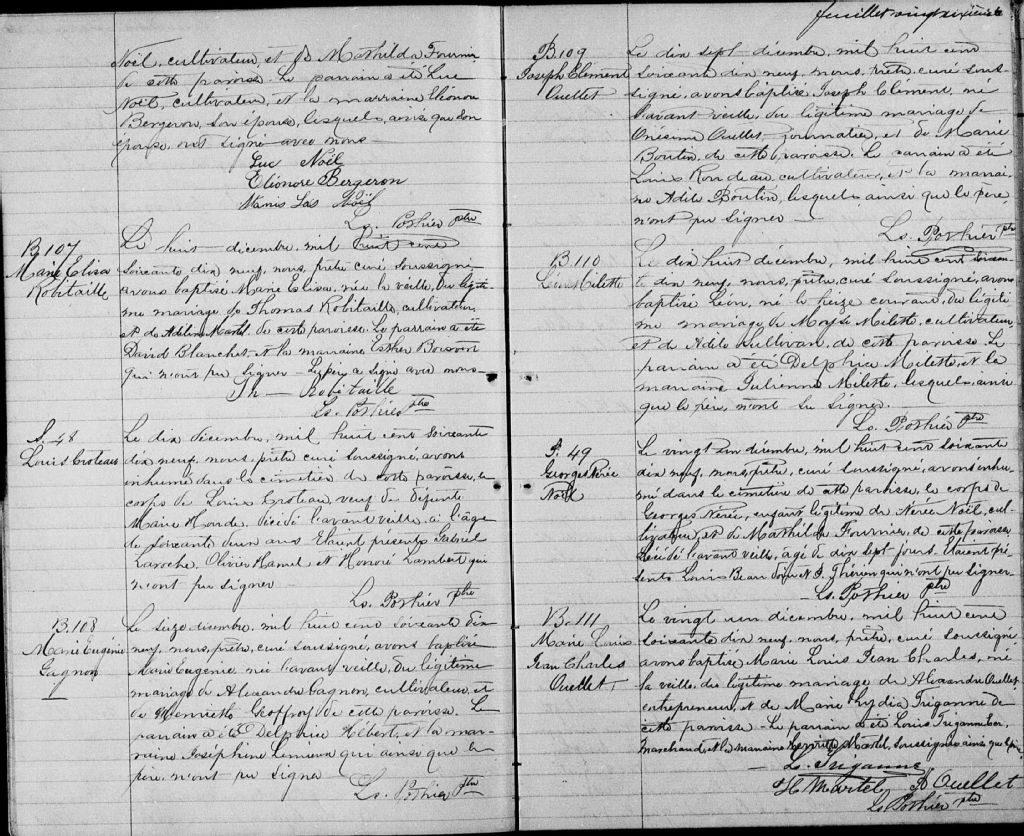 Noël, cultivateur, et de Mathilda Fournier
de cette paroisse. Le parrain a été Luc
Noël, cultivateur, et la marraine Eliénore
Bergeron, son épouse, lesquels, ainsi que son
épouse, ont signé avec nous
Luc Noël
Eliénore Bergeron
Stanis Las Noël
Ls. Pothier ptre
B 107
Marie Elisa
Robitaille
Le huit décembre, mil huit cent
soixante dix neuf, nous, prêtre curé soussigné
avons baptisé Marie Elisa, née la veille, du légiti-
me mariage de Thomas Robitaille, cultivateur
et de Adeline Martel de cette paroisse. Le parrain a été
David Blanchet, et la marraine Esther Boisvert
qui n'ont pu signer - Le père a signé avec nous -
Th - Robitaille
Ls. Pothier ptre
S. 48
Louis Croteau
Le dix décembre, mil huit cent soixante
dix neuf, nous, prêtre curé soussigné, avons
enhumé dans le cimetière de cette paroisse, le
corps de Louis Croteau, veuf de défunte
Marie Houde, décédé l'avant veille, à l'âge
de soixante un ans Etaient présents Gabriel
Laroche, Olivier Hamel et Honoré Lambert qui
n'ont pu signer
Ls. Pothier ptre
B. 108
Marie Eugénie
Gagnon
Le seize décembre, mil huit cent soixante dix
neuf, nous, prêtre, curé soussigné, avons baptisé
Marie Eugénie, née l'avant veille, du légitime
mariage de Alexandre Gagnon, cultivateur, et
de Henriette Geoffroy de cette paroisse. Le
parrain a été Delphice Hébert, et la mar-
raine Joséphine Lemieux qui ainsi que le
père n'ont pu signer
Ls. Pothier ptre
feuillet vingt sixième
B 109
Joseph Clément
Ouellet
Le dix sept décembre, mil huit cent
soixante dix neuf, nous, prêtre, curé sous-
signé, avons baptisé Joseph Clément, né
l'avant veille, du légitime mariage de
Onésime Ouellet journalier, et de Marie
Boutin, de cette paroisse. Le parrain a été
Louis Rondeau, cultivateur, et la marrai-
ne Adèle Boutin, lesquels ainsi que le père
n'ont pu signer -
Ls. Pothier ptre
B 110
Léon Milette
Le dix huit décembre, mil huit cent soixan-
te dix neuf, nous, prêtre, curé soussigné, avons
baptisé Léon, né le seize courant, du légiti
me mariage de Moyse Milette, cultivateur
et de Adèle Sullivan, de cette paroisse. Le
parrain a été Delphice Milette, et la
marraine Julienne Milette, lesquels, ainsi
que le père, n'ont su signer.
Ls. Pothier ptre
S. 49
Georges Nérée
Noël
Le vingt un décembre, mil huit cent soixante
dix neuf, nous, prêtre, curé soussigné, avons enhu-
mé dans le cimetière de cette paroisse, le corps de
Georges Nérée, enfant légitime de Nérée Noël, cul-
tivateur, et de Mathilda Fournier, de cette paroisse
décédé l'avant veille, agé de dix sept jours. Etaient pré-
sents Louis Beaudoin et J. Thérien qui n'ont pu signer -
Ls. Pothier ptre
B. 111
Marie Louis
Jean Charles
Ouellet
Le vingt un décembre, mil huit cent
soixante dix neuf, nous, prêtre, curé soussigné
avons baptisé Marie Louis Jean Charles, né
la veille du légitime mariage de Alexandre Ouellet
entrepreneur, et de Marie Lydia Triganne de
cette paroisse - Le parrain a été Louis Triganne
marchand, et la marraine Henriette Martel, soussignés ainsi que le père
Ls. Triganne
H. Martel A Ouellet
Ls Pothier ptre